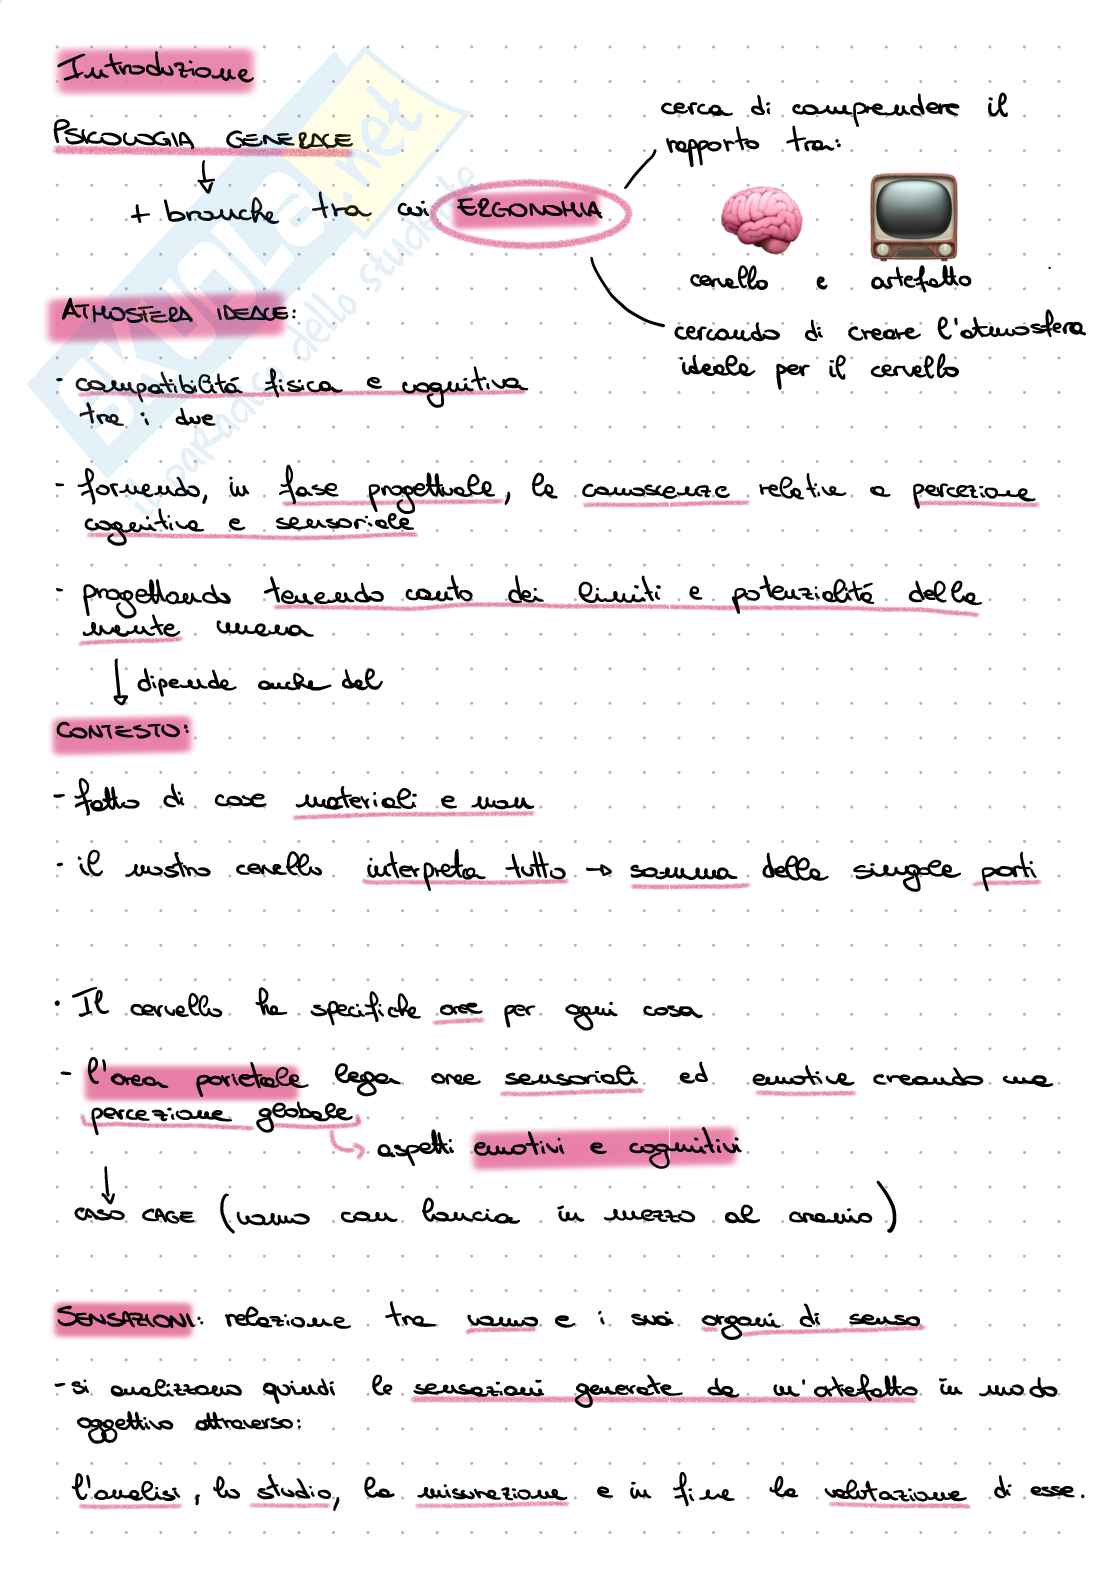 Introduzione
PSICOLOGIA GENERALE
+ branche tra cui ERGONOMIA
cerca di comprendere il
rapporto tra:
cervello e artefatto
cercando di creare l'atmosfera
ideale per il cervello
ATMOSFERA IDEALE:
- compatibilitá fisica e cognitiva
tra i due
- fornendo, in fase progettuale, le conoscenze relative a percezione
cognitiva e sensoriale
- progettando tenendo conto dei limiti e potenzialitá della
mente umana
dipende anche dal
CONTESTO:
- fatto di cose materiali e non
- il nostro cervello interpreta tutto → somma delle singole parti
• Il cervello ha specifiche aree per ogni cosa
- l'area parietale lega aree sensoriali ed emotive creando una
percezione globale
aspetti emotivi e cognitivi
CASO CAGE (uomo con lancia in mezzo al cranio)
SENSAZIONI: relazione tra uomo e i suoi organi di senso
- si analizzano quindi le sensazioni generate da un'artefatto in modo
oggettivo attraverso:
l'analisi, lo studio, la misurazione e in fine la valutazione di esse.
SKUOLA.net
il paradiso dello studente